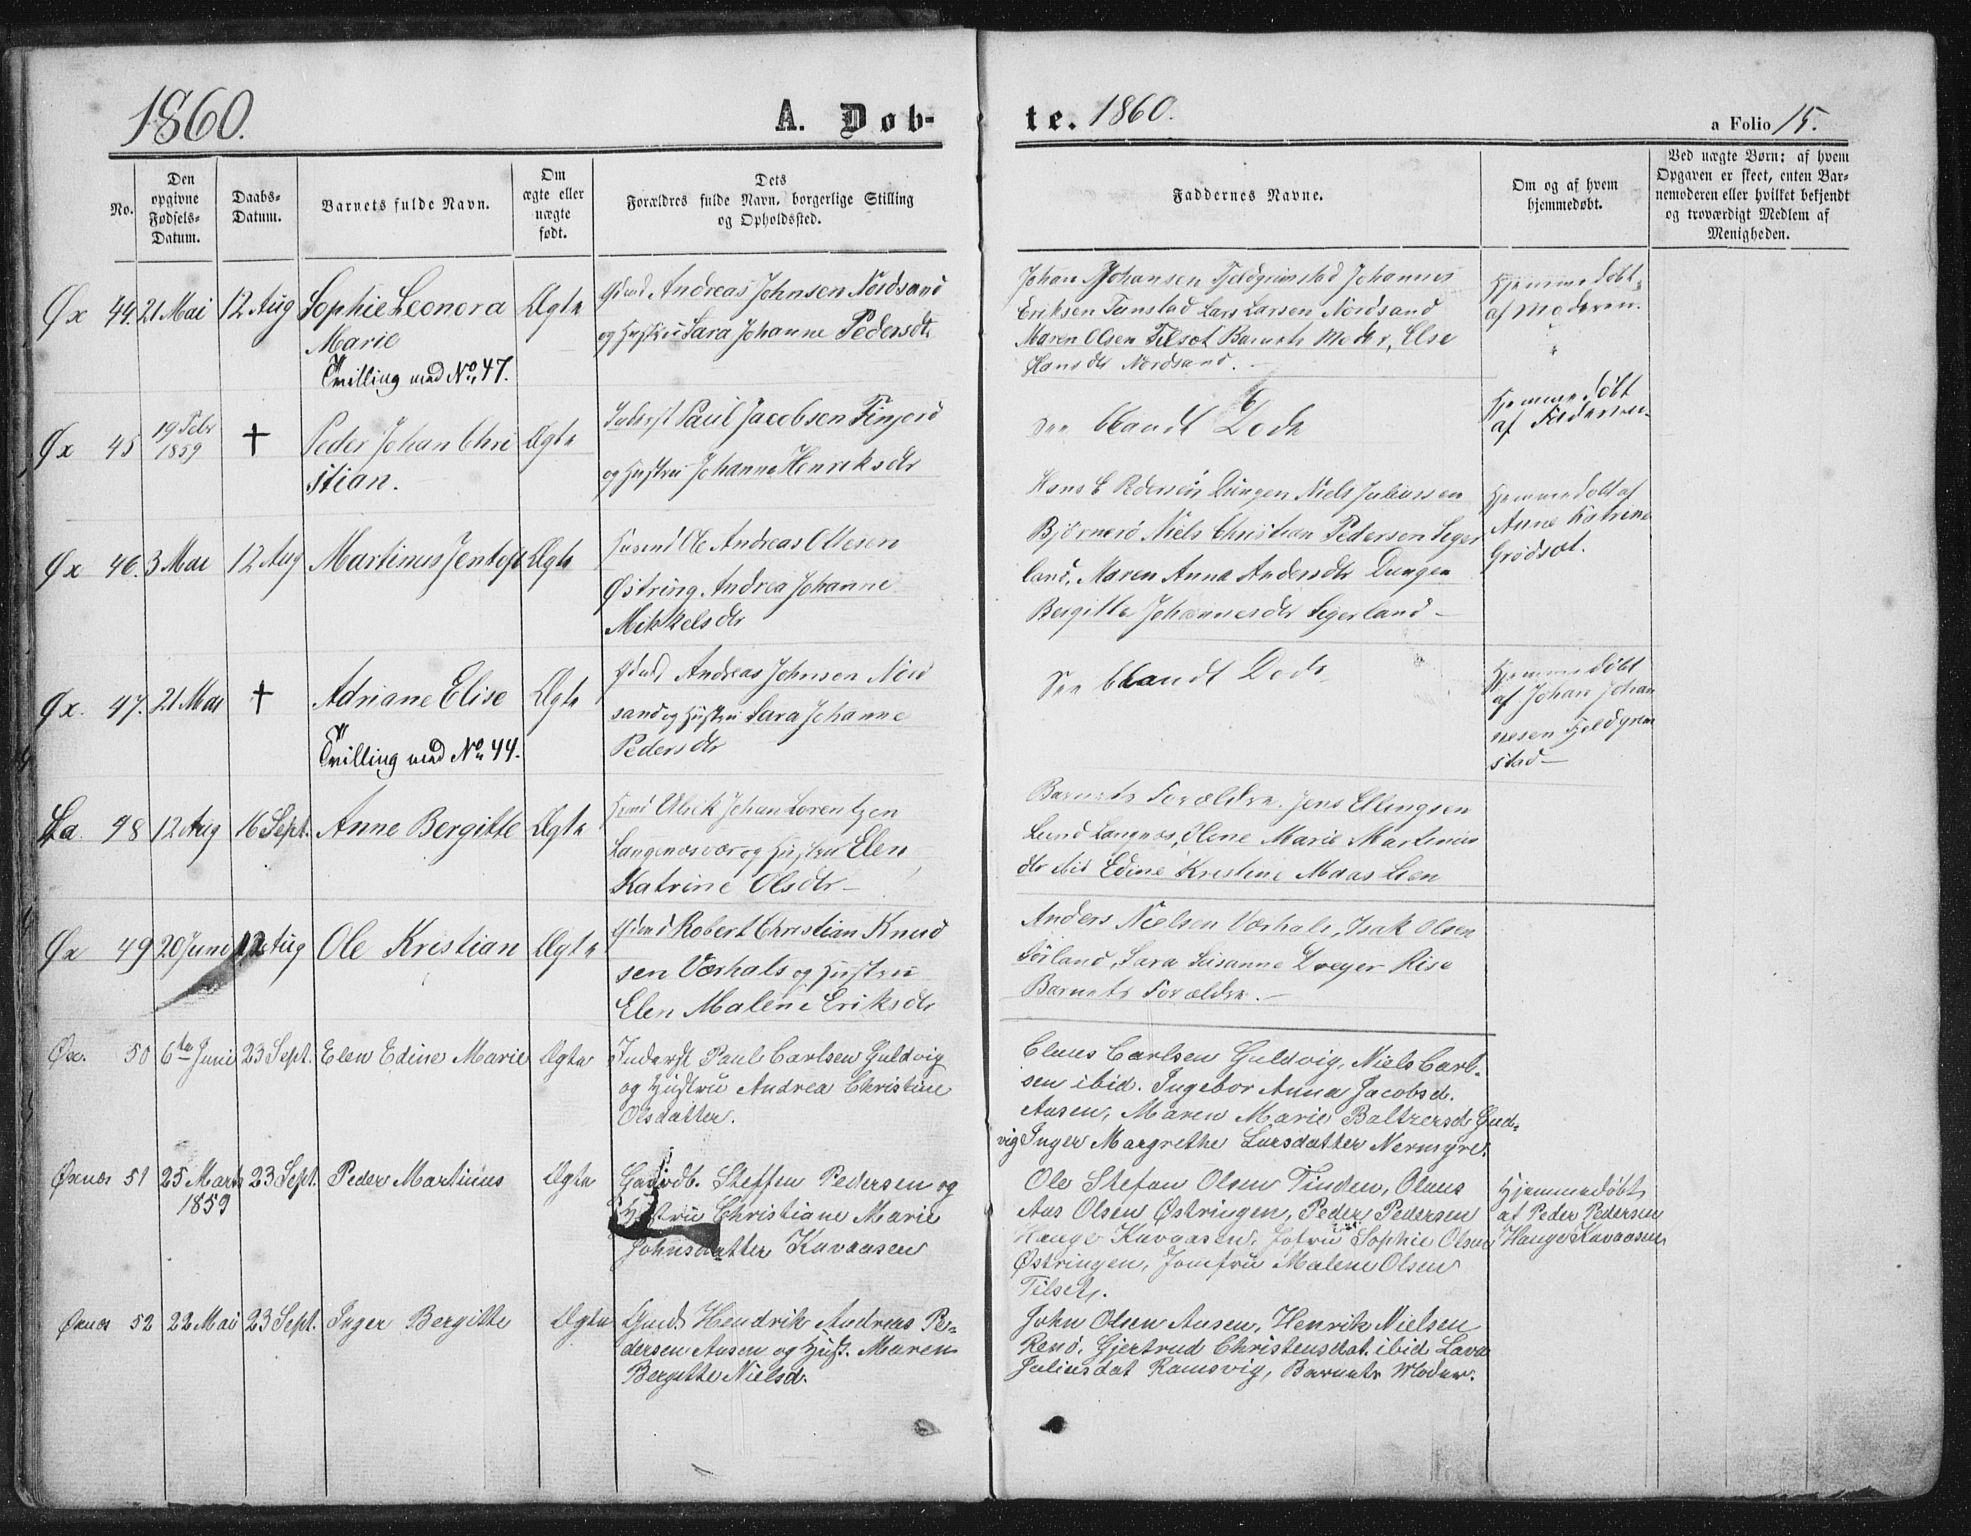 1860.
A. Døb-
No.
Den opgivne Fødsels-Datum.
Daabs-Datum.
Barnets fulde Navn.
Om ægte eller uægte født.
Dets Forældres fulde Navn, borgerlige Stilling og Opholdssted.
Øx 44. 21 Mai 12 Aug Sophie Leonora Ægte Andreas Johnsen Nordsand
Marie og Hustru Sara Johanne Pedersdtr
Tvilling med No. 47.
Øx 45 19 Febr 1859 † Peder Johan Chri Ægte Inderst Paul Jacobsen Finjord
stian. og Hustru Johanne Henriksdtr
Øx 46. 3 Mai 12 Aug Martinus Jentoft Ægte Husmd Ole Andreas Olsen
Østring, Andrea Johanne
Mikkelsdtr
Øx. 47. 21 Mai † Adriane Elise Ægte Andreas Johnsen Nord
sand og Hustru Sara Johanne
Tvilling med No. 44. Pedersdtr
La. 48 12 Aug 16 Sept. Anne Bergitte Ægte Johan Lorentzen
Langenæsvær og Hustru Elen
Katrine Olsdtr
Øx 49 20 Juni 12 Aug Ole Kristian Ægte Gdmd Robert Christian Knud
sen Værhals og Hustru
Elen Malene Eriksdtr
Øx. 50 6te Juni 23 Sept. Elen Edine Marie Ægte Inderst Paul Carlsen Guldvig
og Hustru Andrea Christine
Olsdatter.
Øxnæs 51 25 Marts 1859 23 Sept. Peder Martinus Ægte Gaardb. Steffen Pedersen og
Hustru Christiane Marie
Johnsdatter Kavaasen
Øxnæs 52 22 Mai 23 Sept. Inger Bergitte Ægte Gmd. Hendrik Andreas Pe-
dersen Aasen og Hust. Maren
Bergitte Nielsd.
te. 1860.
a Folio 15.
Faddernes Navne.
Om og af hvem hjemmedøbt.
Ved uægte Børn: af hvem Opgaven er skeet, enten Barnemoderen eller hvilket bekjendt og troværdigt Medlem af Menigheden.
Johan Johansen Fjeldgrimstad Johannes Hjemmedøbt
Eriksen Tunstad Lars Larsen Nordsand af Moderen.
Maren Olsen Tilset Barnets Moder, Else
Hansdtr Nordsand.
See blandt Døde Hjemmedøbt
af Faderen
Hans E Pedersen Dungen Niels Juliussen Hjemmedøbt af
Bjørnerø Niels Christian Pedersen Seger Anne Katrine
land, Maren Anna Andersdtr Dungen Grødsæt.
Bergitte Johannesdtr Segerland
See blandt Døde Hjemmedøbt
af Johan Johan
nesen Fjeldgrim
stad
Barnets Forældre, Jens Ellingsen
Lund Langnæs, Oline Marie Martinus
dtr ibid Edine Kristine Maas Lien
Anders Nielsen Værhals, Isak Olsen
Sørland, Sara Susanne Dreyer Rise
Barnets Forældre.
Claus Carlsen Guldvig, Niels Carl-
sen ibid. Ingebor Anna Jacobsd.
Aasen, Maren Marie Baltzersd. Guld-
vig Inger Margrethe Larsdatter Nermyre.
Ole Stefan Olsen Tinden, Olaus Hjemmedøbt
Aas Olsen Østringen, Peder Pedersen af Peder Pedersen
Hauge Kavaasen, Jofru Sophie Olsen Hauge Kavaasen
Østringen, Jomfru Malene Olsen
Tilset.
John Olsen Aasen, Henrik Nielsen
Renø, Gjertrud Christensdat. ibid Lava
Juliusdat Ramsvig, Barnets Moder.